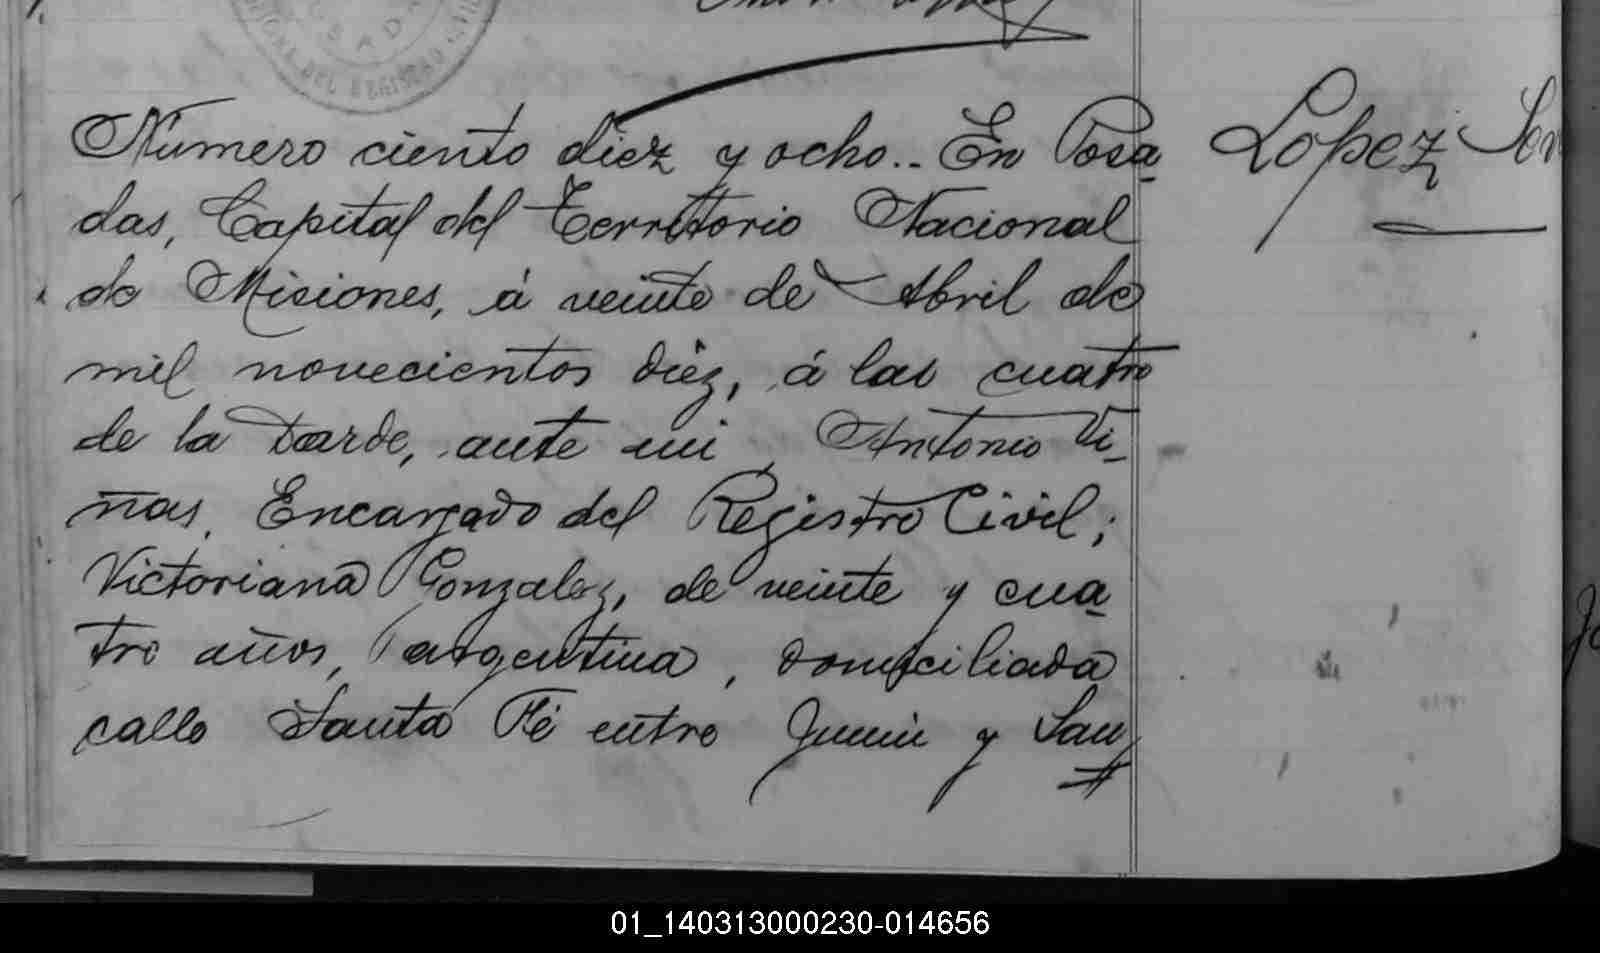 Número ciento diez y ocho.. En Posa-
das, Capital del Territorio Nacional
de Misiones, á veinte de Abril de
mil novecientos diéz, á las cuatro
de la tarde, ante mi, Antonio Vi-
ñas, Encargado del Registro Civil;
Victoriana Gonzalez, de veinte y cua-
tro años, argentina, domiciliada
calle Santa Fé entre Junin y San
Lopez
01_140313000230-014656